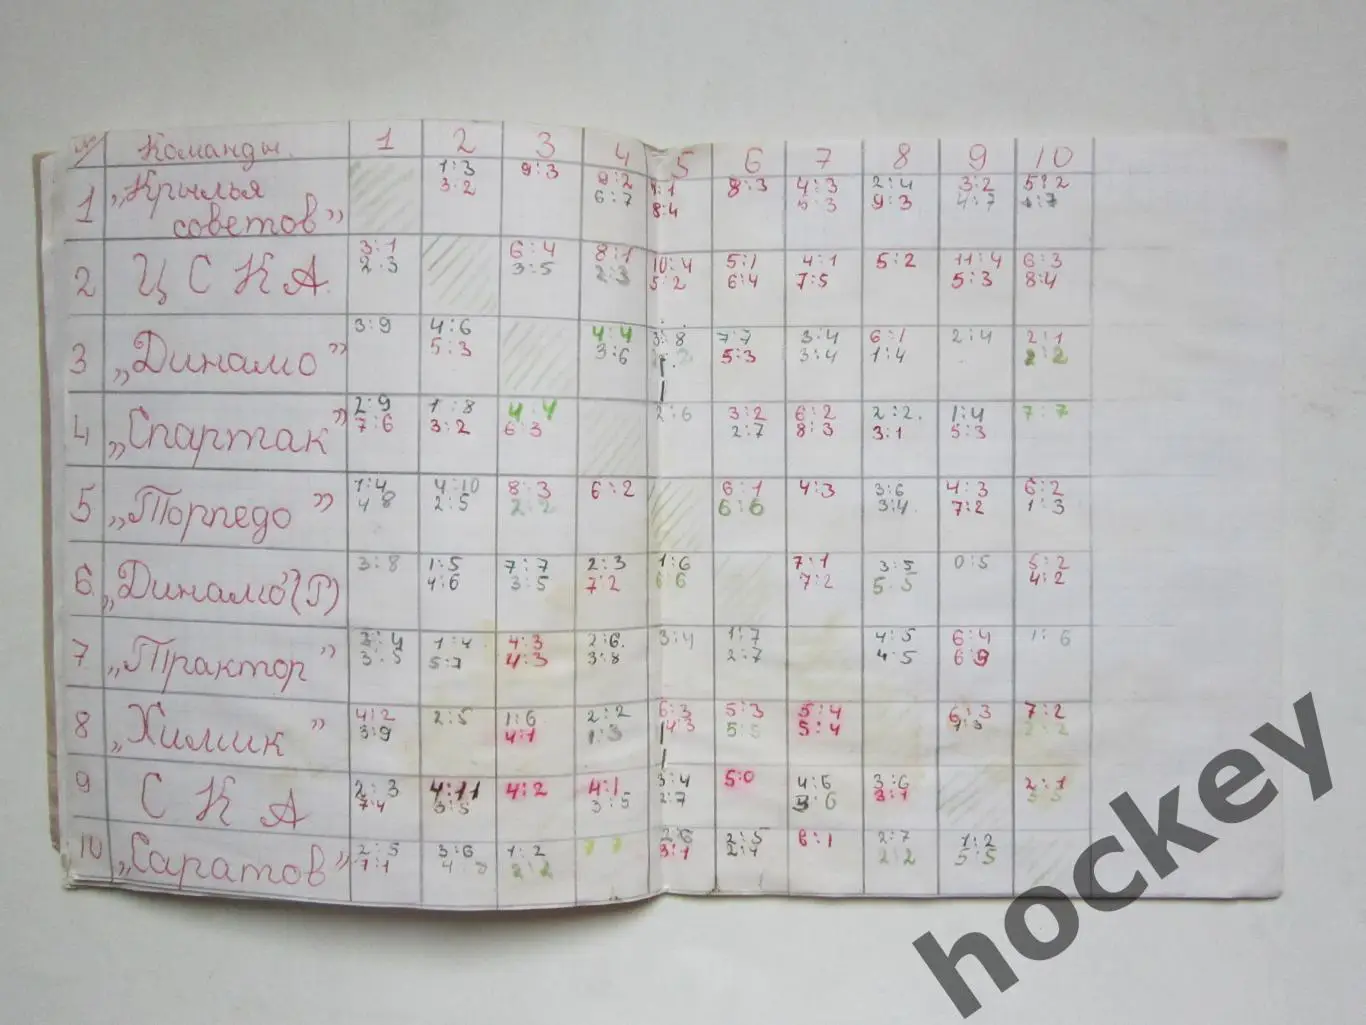 Команды 1 2 3 4 5 6 7 8 9 10
1 „Крылья 1:3 9:3 9:2 8:3 4:3 2:4 3:2 5:2
советов” 3:2 6:7 8:4 5:3 9:3 4:7
2 ЦСКА 3:1 6:4 8:1 10:4 5:1 4:1 5:2 11:4 6:3
2:3 3:5 2:3 5:2 6:4 7:5 5:3 8:4
3 „Динамо” 3:9 4:6 4:4 3:8 7:7 3:4 6:1 2:4 2:1
5:3 3:6 5:3 3:4 1:4 2:2
4 „Спартак” 2:9 1:8 4:4 2:6 3:2 6:2 2:2 1:4 7:7
7:6 3:2 6:3 2:7 8:3 3:1 5:3
5 „Торпедо” 1:4 4:10 8:3 6:2 6:1 4:3 3:6 4:3 6:2
4 8 2:5 2:2 6:6 3:4 7:2 1:3
6 „Динамо (Р) 3:8 1:5 7:7 2:3 1:6 7:1 3:5 0:5 5:2
4:6 3:5 7:2 6:6 7:2 5:5 4:2
7 „Трактор” 3:4 1:4 4:3 2:6 3:4 1:7 4:5 6:4 1:6
3:5 5:7 4:3 3:8 2:7 4:5 6:9
8 „Химик” 4:2 2:5 1:6 2:2 6:3 5:3 5:4 6:3 7:2
3:9 4:1 1:3 4:3 5:5 5:4 2:2
9 СКА 2:3 4:11 4:2 4:1 3:4 5:0 4:6 3:6 2:1
7:4 3:5 3:5 2:7 3:6 3:1 5:5
10 „Саратов” 2:5 3:6 1:2 7 7 2:6 2:5 6:1 2:7 1:2
7:1 2:2 3:1 2:2 5:5
hockey